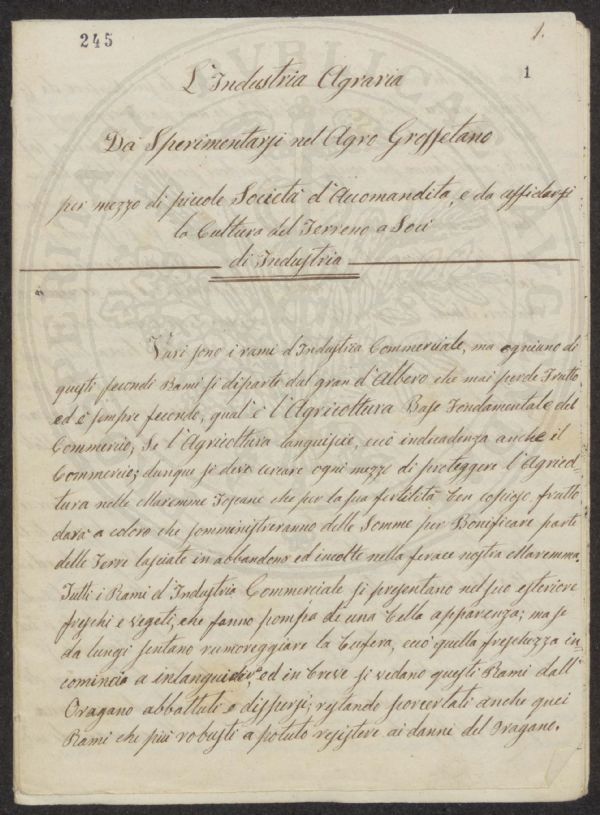 245
1.
1
L'Industria Agraria
Da Sperimentarsi nel Agro Grossetano
per mezzo di piccole Società d'Accomandita, e da affidarsi
la Cultura del Terreno a Soci
di Industria
Vari sono i rami d'Industria Commerciale, ma ogniuno di
questi secondi Rami si diparte dal gran d'Albero che mai perde Frutto,
ed è sempre fecondo, qual è l'Agricoltura Base Fondamentale del
Commercio; Se l'Agricoltura languiscie, ecco indecadenza anche il
Commercio; dunque si deve cercare ogni mezzo di proteggere l'Agricol-
tura nelle Maremme Toscane che per la sua fertilità ben copioso frutto
darà a coloro che somministreranno delle Somme per Bonificare parte
delle Terre lasciate in abbandono ed incolte nella ferace nostra Maremma.
Tutti i Rami d'Industria Commerciale si presentano nel suo esteriore
freschi e vegeti, che fanno pompa di una bella apparenza; ma se
da lungi sentano rumoreggiare la bufera, ecco quella freschezza in-
comincia a inlanguidirsi, ed in breve si vedano questi Rami dall'
Oragano abbattuti e dispersi; restando sconcertati anche quei
Rami che più robusti a potuto resistere ai danni del Oragano.